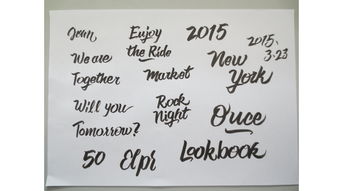 Jean,
Enjoy
the Ride
2015
2015.
3.23
We are
Together
Market
New
York
Will you
Tomorrow?
Rock
Night
Ouce
50
Elpi
Lookbook